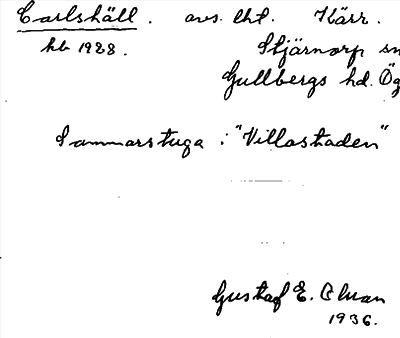 Carlshäll. avs. lht. Kärr.
hb 1928. Stjärnorp sn
Gullbergs hd. Ög
Sommarstuga i "Villastaden"
Gustaf E. Alman
1936.